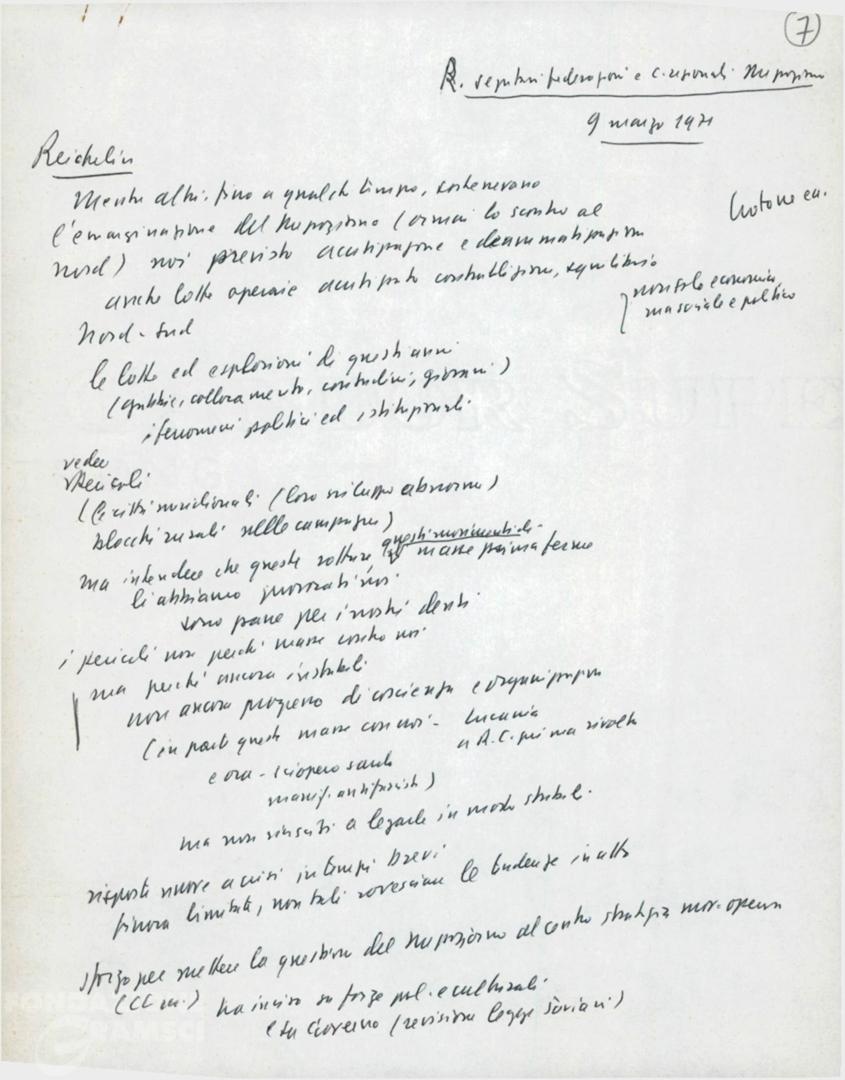 7
R. segretari federazioni e c. regionali Mezzogiorno
9 marzo 1971
Reichlin
Mentre altri, fino a qualche tempo, sostenevano
l'emarginazione del Mezzogiorno (ormai lo scontro al
nord) noi previsto acutizzazione e drammatizzazione
anche lotte operaie acutizzato contraddizioni, squilibrio
Nord-Sud
non solo economia,
ma sociale e politico
le lotte ed esplosioni di questi anni
(gabbie, collocamento, contadini, giovani)
i fenomeni politici ed istituzionali
vedere
pericoli
(le città meridionali (loro sviluppo abnorme)
blocchi rurali nelle campagne)
ma intendere che queste rotture questi movimenti di
masse prima ferme
li abbiamo provocati noi
sono pane per i nostri denti
i pericoli non perché masse contro noi
ma perché ancora instabili
non ancora processo di coscienza e organizzazione
(in parte queste masse con noi - Lucania
a R.C. prima rivolta
e ora - sciopero
manif. antifascist)
ma non riusciti a legarle in modo stabile.
risposte nuove a crisi in tempi brevi
finora limitate, non tali rovesciare le tendenze in atto
sforzo per mettere la questione del Mezzogiorno al centro strategia mov. operaio
(CC ) ha inciso su forze pol. e culturali
e su Governo (revisione legge )
FONDAZIONE
GRAMSCI